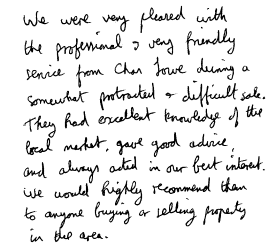 We were very pleased with
the professional & very friendly
service from Chas Lowe during a
somewhat protracted & difficult sale.
They had excellent knowledge of the
local market, gave good advice,
and always acted in our best interest.
We would highly recommend them
to anyone buying or selling property
in the area.